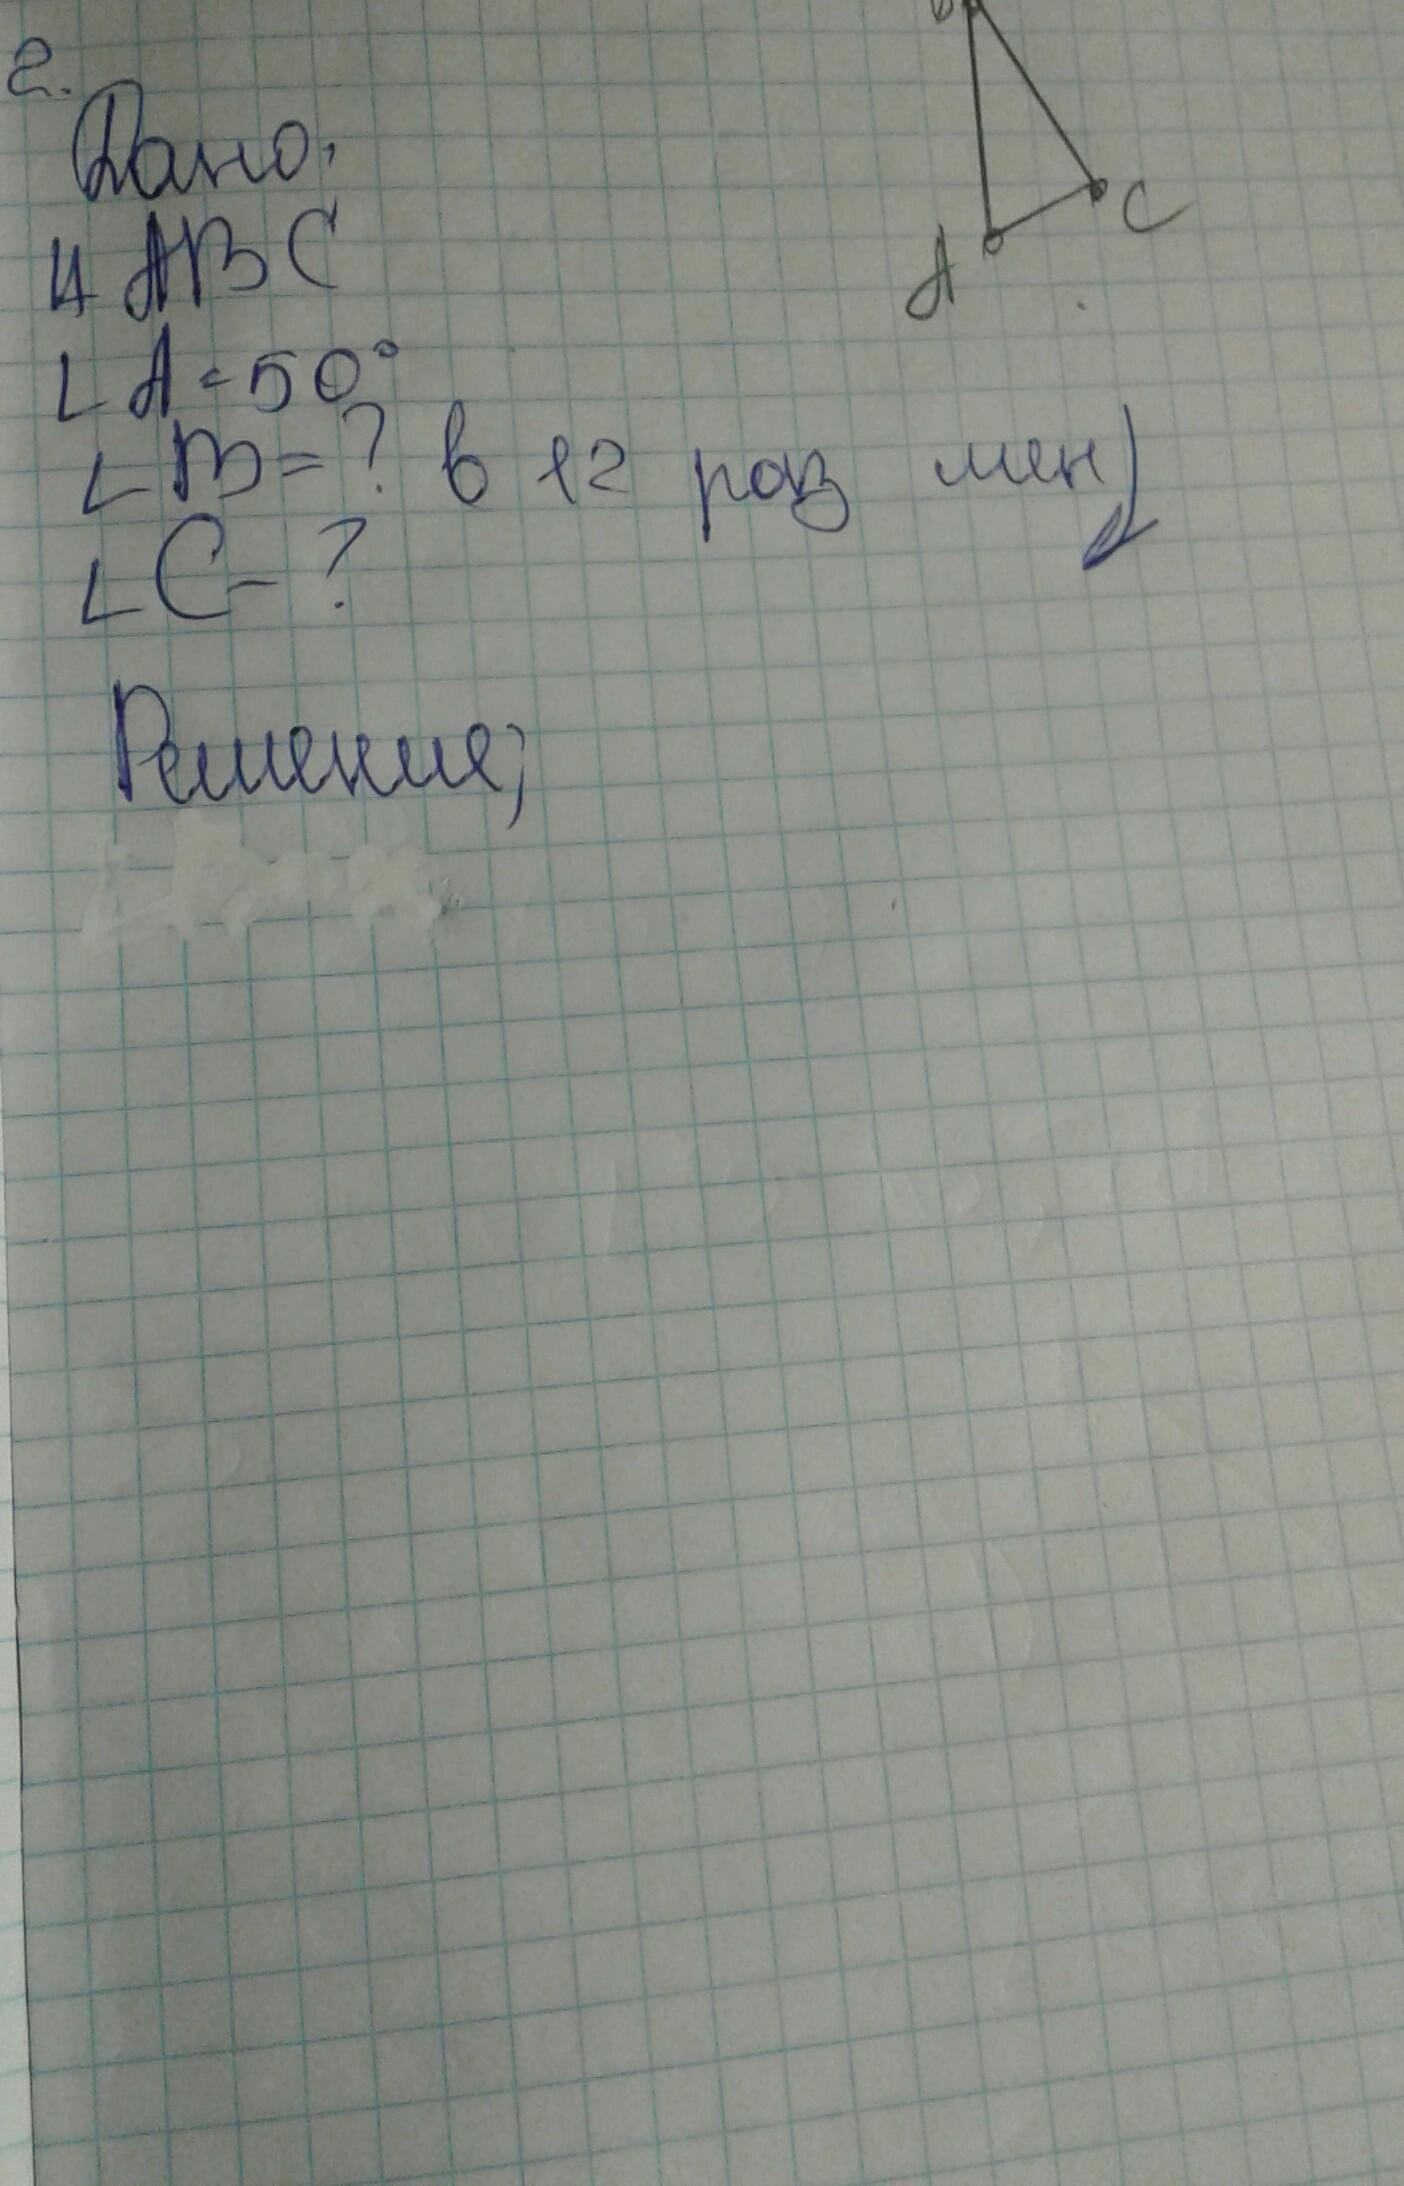 2.
Дано:
∆ ABC
∠ A = 50°
∠ B = ? в 12 раз мен
∠ C - ?
Решение;
B
C
A